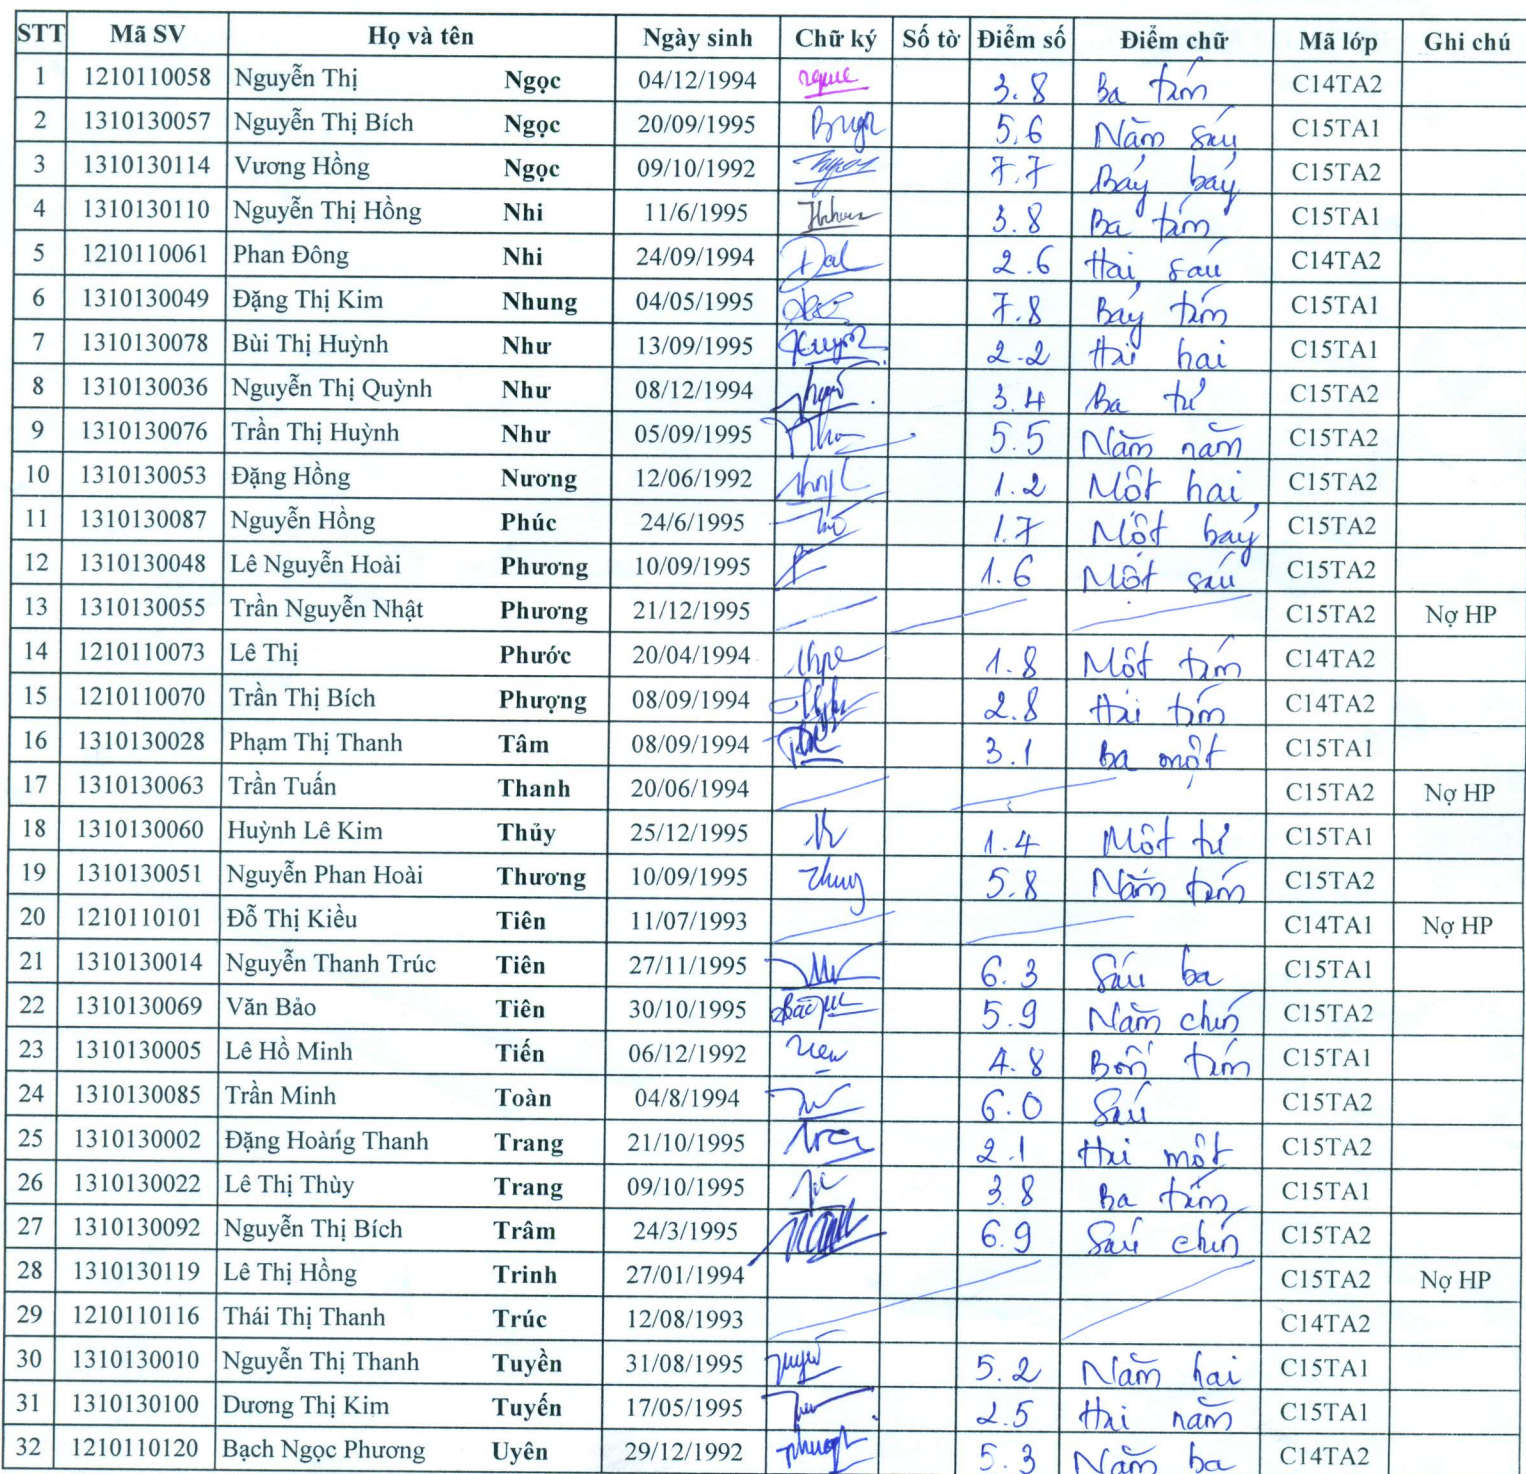 STT Mã SV Họ và tên Ngày sinh Chữ ký Số tờ Điểm số Điểm chữ Mã lớp Ghi chú
1 1210110058 Nguyễn Thị Ngọc 04/12/1994 3.8 Ba tám C14TA2
2 1310130057 Nguyễn Thị Bích Ngọc 20/09/1995 5.6 Năm sáu C15TA1
3 1310130114 Vương Hồng Ngọc 09/10/1992 7.7 Bảy bảy C15TA2
4 1310130110 Nguyễn Thị Hồng Nhi 11/6/1995 3.8 Ba tám C15TA1
5 1210110061 Phan Đông Nhi 24/09/1994 2.6 Hai sáu C14TA2
6 1310130049 Đặng Thị Kim Nhung 04/05/1995 7.8 Bảy tám C15TA1
7 1310130078 Bùi Thị Huỳnh Như 13/09/1995 2.2 Hai hai C15TA1
8 1310130036 Nguyễn Thị Quỳnh Như 08/12/1994 3.4 Ba tư C15TA2
9 1310130076 Trần Thị Huỳnh Như 05/09/1995 5.5 Năm năm C15TA2
10 1310130053 Đặng Hồng Nương 12/06/1992 1.2 Một hai C15TA2
11 1310130087 Nguyễn Hồng Phúc 24/6/1995 1.7 Một bảy C15TA2
12 1310130048 Lê Nguyễn Hoài Phương 10/09/1995 1.6 Một sáu C15TA2
13 1310130055 Trần Nguyễn Nhật Phương 21/12/1995 C15TA2 Nợ HP
14 1210110073 Lê Thị Phước 20/04/1994 1.8 Một tám C14TA2
15 1210110070 Trần Thị Bích Phượng 08/09/1994 2.8 Hai tám C14TA2
16 1310130028 Phạm Thị Thanh Tâm 08/09/1994 3.1 Ba một C15TA1
17 1310130063 Trần Tuấn Thanh 20/06/1994 C15TA2 Nợ HP
18 1310130060 Huỳnh Lê Kim Thủy 25/12/1995 1.4 Một tư C15TA1
19 1310130051 Nguyễn Phan Hoài Thương 10/09/1995 5.8 Năm tám C15TA2
20 1210110101 Đỗ Thị Kiều Tiên 11/07/1993 C14TA1 Nợ HP
21 1310130014 Nguyễn Thanh Trúc Tiên 27/11/1995 6.3 Sáu ba C15TA1
22 1310130069 Văn Bảo Tiên 30/10/1995 5.9 Năm chín C15TA2
23 1310130005 Lê Hồ Minh Tiến 06/12/1992 4.8 Bốn tám C15TA1
24 1310130085 Trần Minh Toàn 04/8/1994 6.0 Sáu C15TA2
25 1310130002 Đặng Hoàng Thanh Trang 21/10/1995 2.1 Hai một C15TA2
26 1310130022 Lê Thị Thùy Trang 09/10/1995 3.8 Ba tám C15TA1
27 1310130092 Nguyễn Thị Bích Trâm 24/3/1995 6.9 Sáu chín C15TA2
28 1310130119 Lê Thị Hồng Trinh 27/01/1994 C15TA2 Nợ HP
29 1210110116 Thái Thị Thanh Trúc 12/08/1993 C14TA2
30 1310130010 Nguyễn Thị Thanh Tuyền 31/08/1995 5.2 Năm hai C15TA1
31 1310130100 Dương Thị Kim Tuyến 17/05/1995 2.5 Hai năm C15TA1
32 1210110120 Bạch Ngọc Phương Uyên 29/12/1992 5.3 Năm ba C14TA2